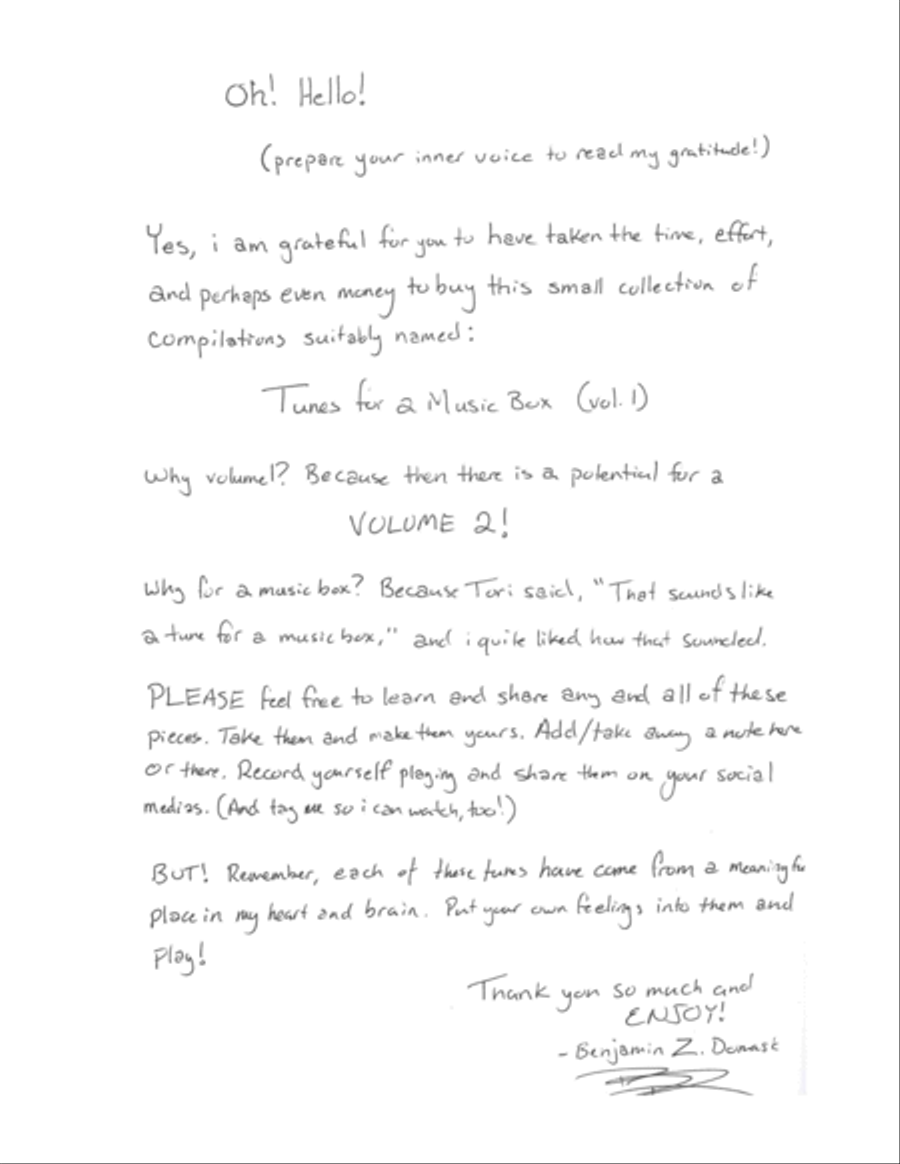 Oh! Hello!
(prepare your inner voice to read my gratitude!)
Yes, i am grateful for you to have taken the time, effort,
and perhaps even money to buy this small collection of
compilations suitably named:
Tunes for a Music Box (vol. 1)
Why volume1? Because then there is a potential for a
VOLUME 2!
Why for a music box? Because Tori said, "That sounds like
a tune for a music box," and i quite liked how that sounded.
PLEASE feel free to learn and share any and all of these
pieces. Take them and make them yours. Add/take away a note here
or there. Record yourself playing and share them on your social
medias. (And tag me so i can watch, too!)
BUT! Remember, each of these tunes have come from a meaningfu
place in my heart and brain. Put your own feelings into them and
play!
Thank you so much and
ENJOY!
- Benjamin Z.